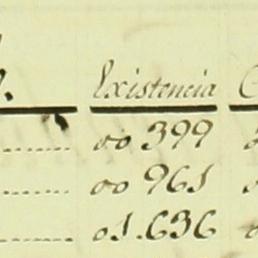 Existencia
oo 399
oo 961
o1.636